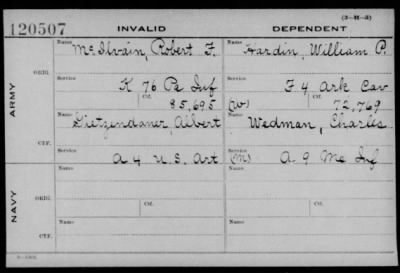 (3-H-3)
120507 INVALID DEPENDENT
Name McIlvain, Robert F. Name Hardin, William P.
ORIG.
Service K 76 Pa Inf Service F 4 Ark Cav
Ctf. 85,695 (W) Ctf. 72,769
ARMY
Name Name Wedman, Charles
Albert
CTF.
Service A 4 U.S. Art Service (M) A 9 Me Inf
Name Name
ORIG.
Service Ctf. Service Ctf.
NAVY
Name Name
CTF.
Service Service